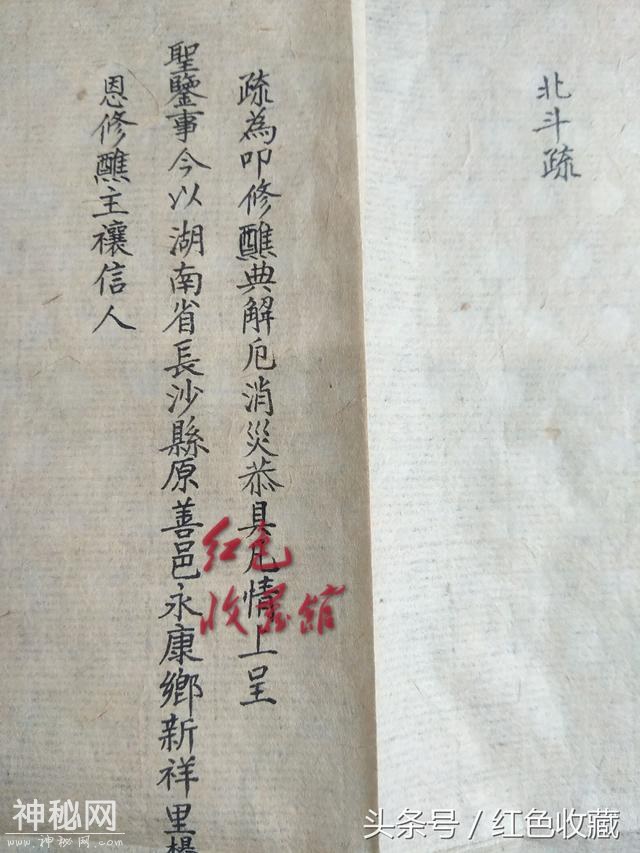 北斗疏
疏為叩修醮典解厄消災恭具凡情上呈
聖鑒事今以湖南省長沙縣原善邑永康鄉新祥里楊
恩修醮主禳信人
红色
收藏館
神秘网
www.神秘网.com
头条号／红色收藏